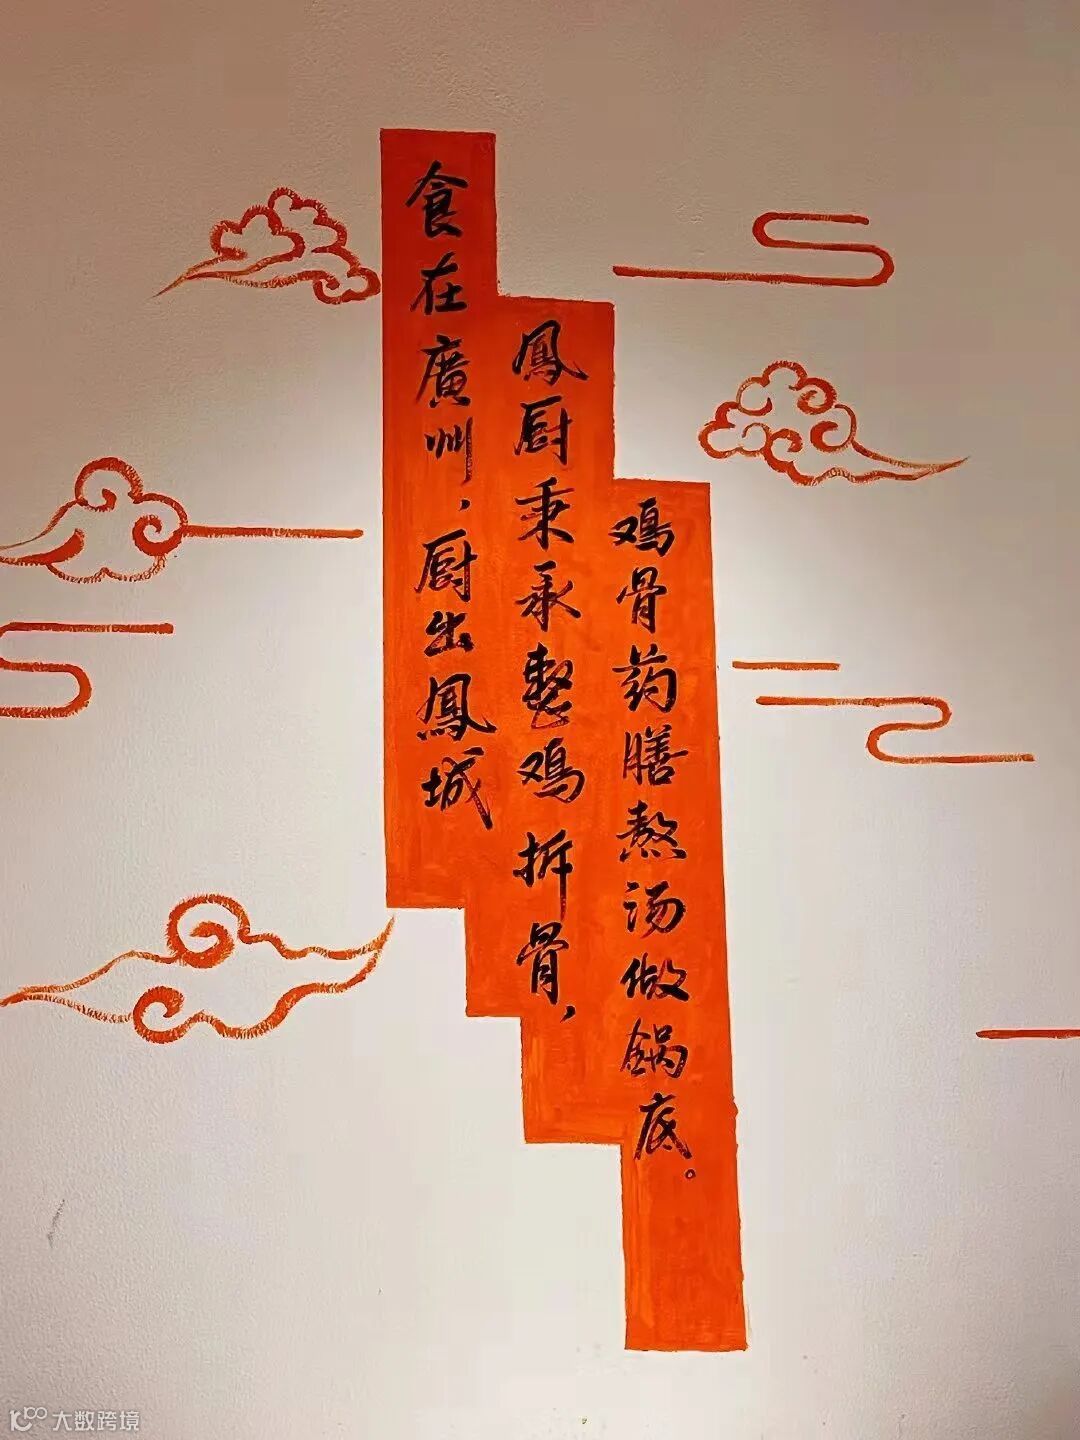 食在廣州，厨出鳳城
鳳厨秉承整鸡拆骨，
鸡骨药膳熬汤做锅底。
大数跨境